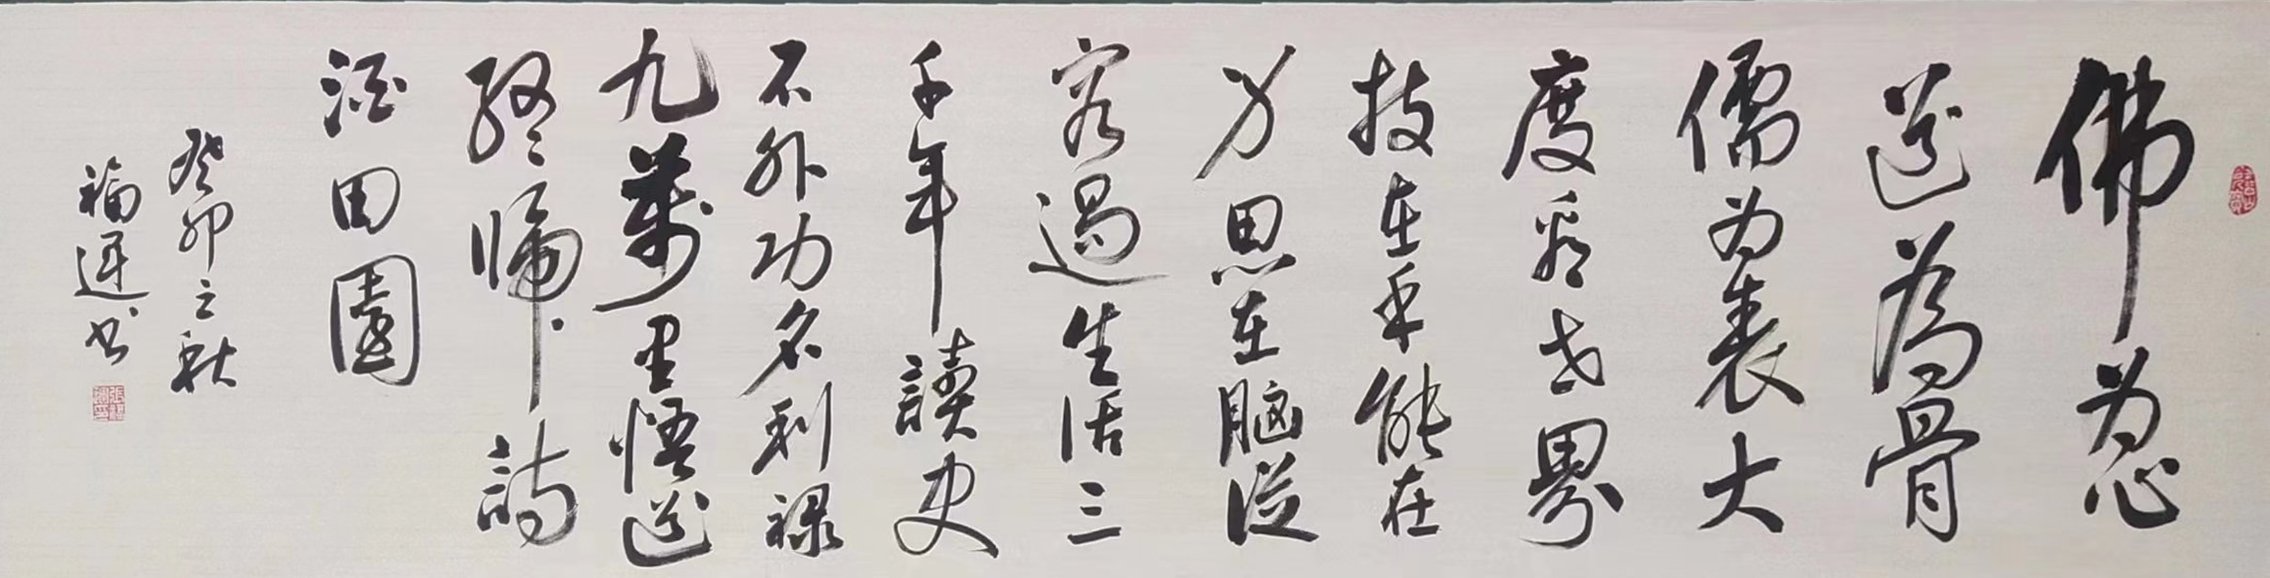 佛为心
道為骨
儒为表大
度看世界
技在手能在
身思在脑從
容過生活三
千年讀史
不外功名利禄
九萬里悟道
終歸詩
酒田園
癸卯之秋
福運书